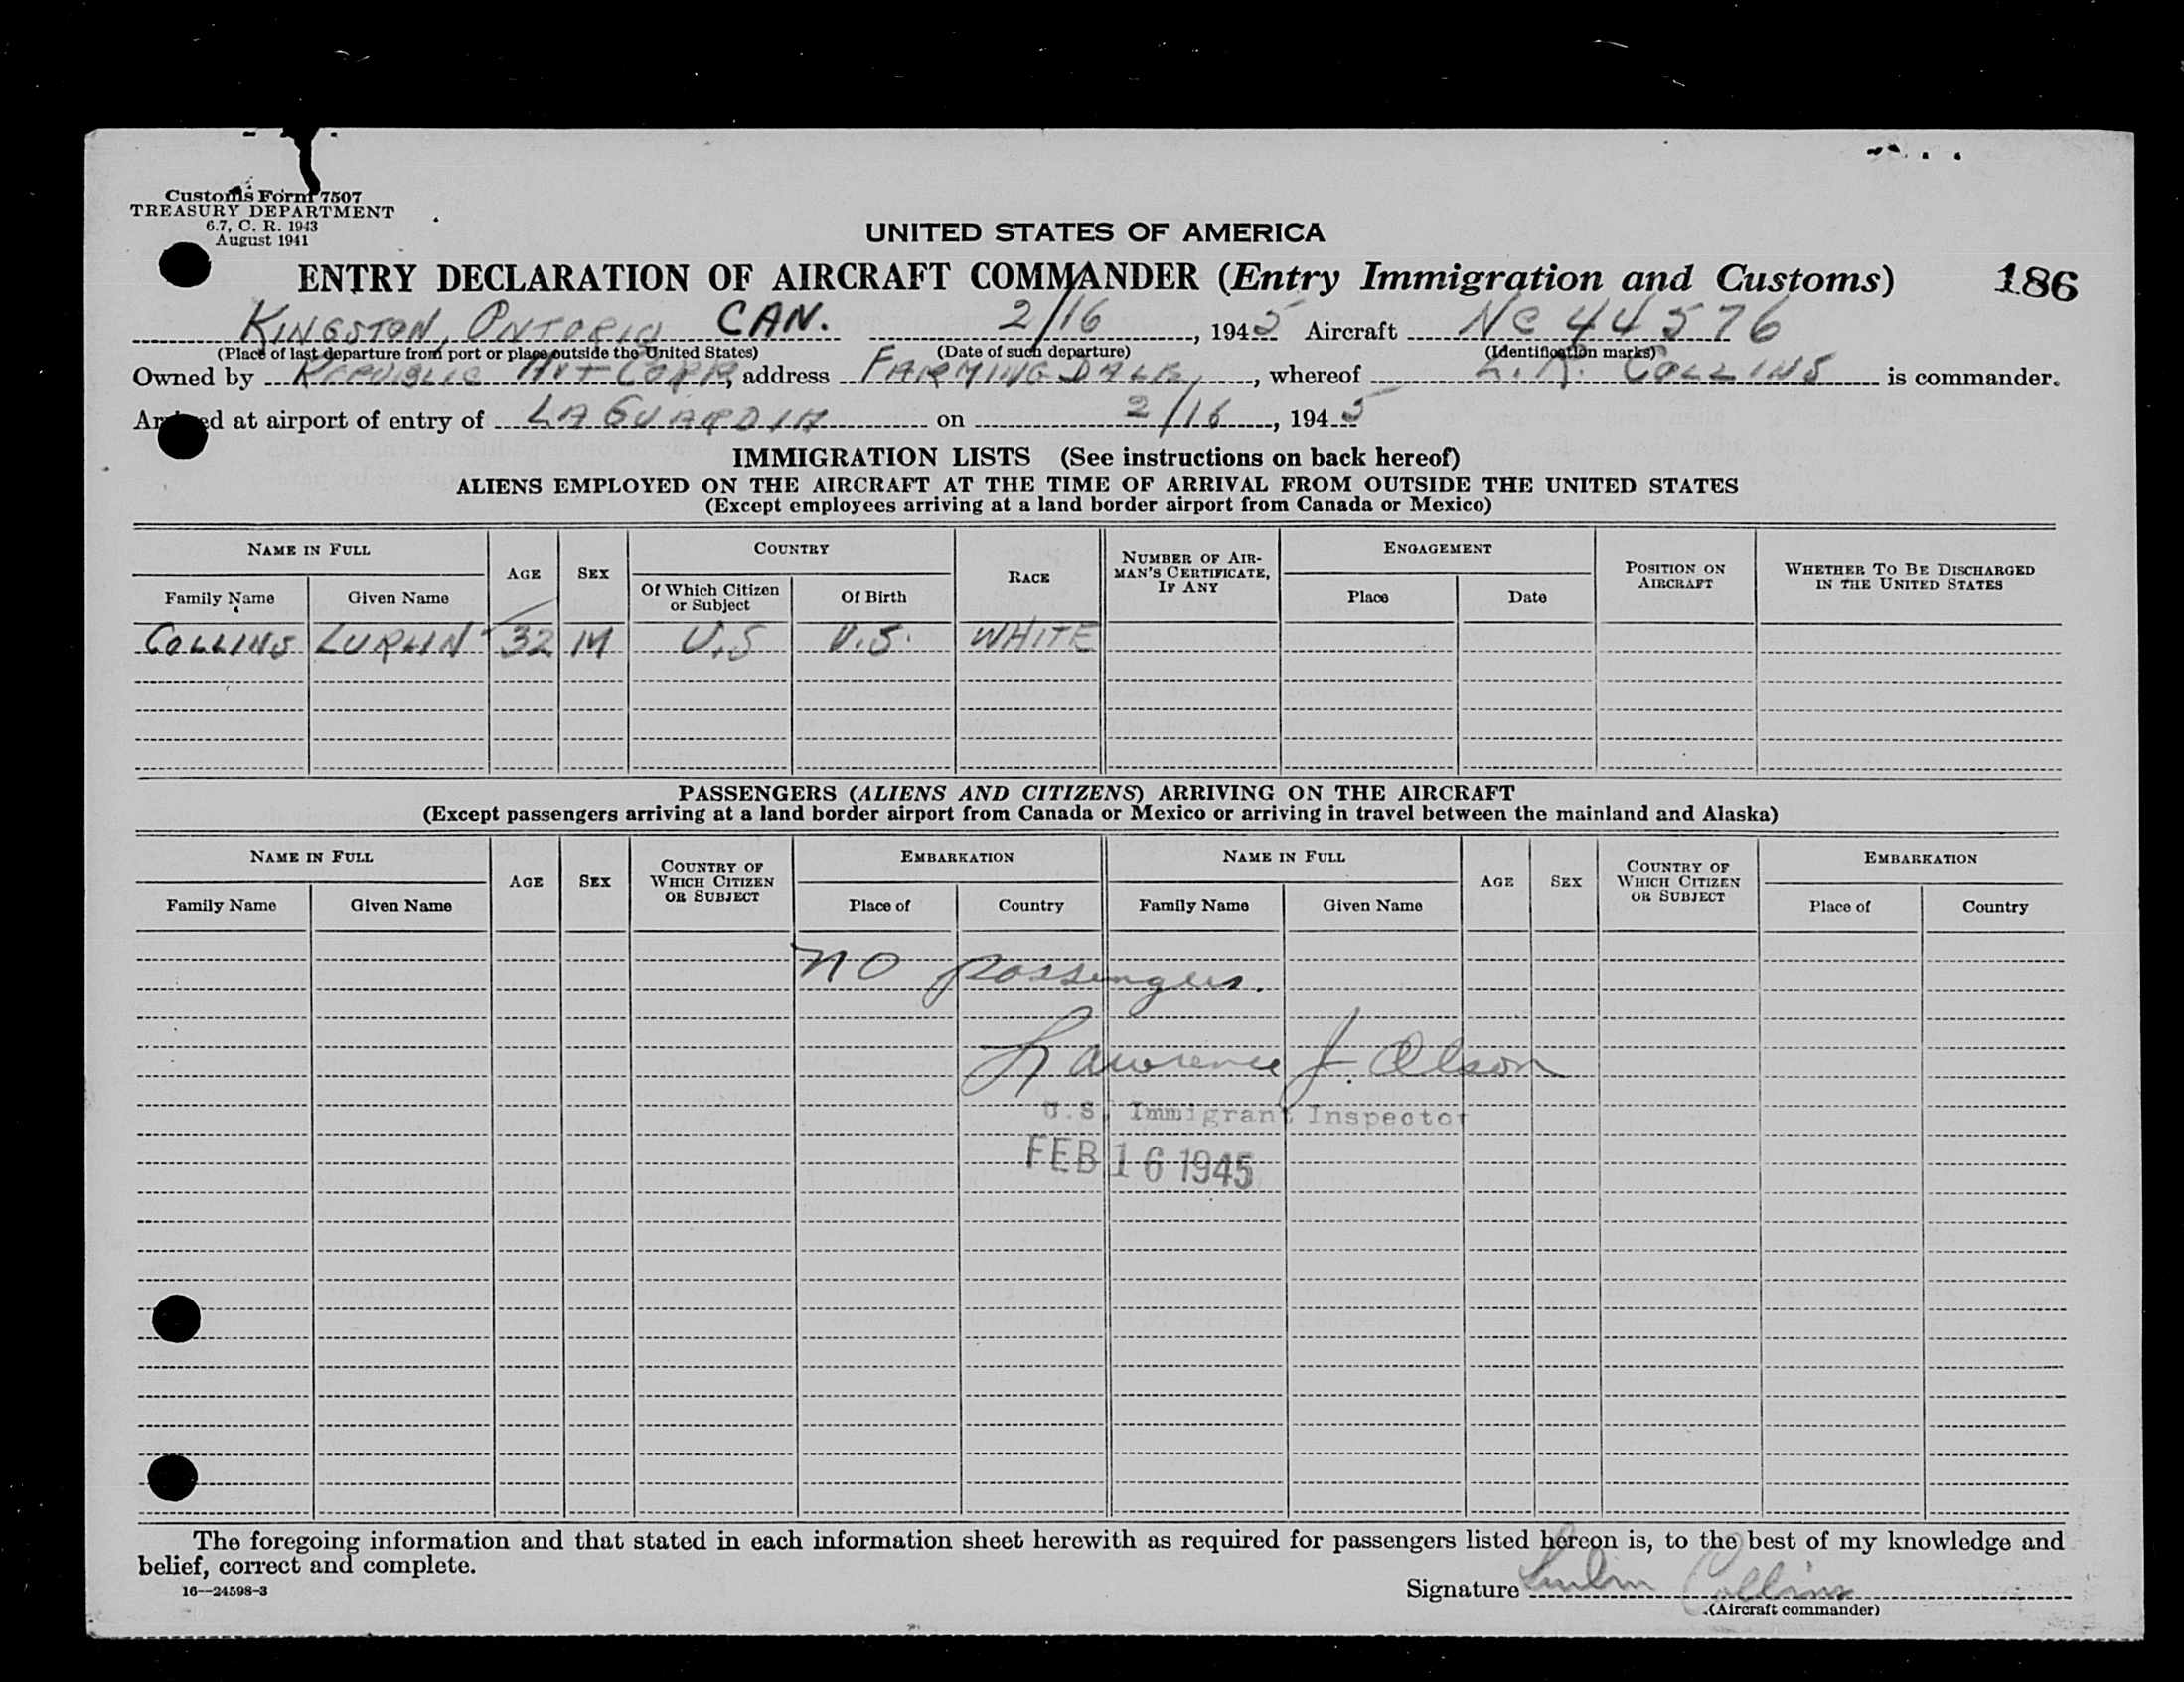 Customs Form 7507
TREASURY DEPARTMENT
6.7, C. R. 1943
August 1941
UNITED STATES OF AMERICA
ENTRY DECLARATION OF AIRCRAFT COMMANDER (Entry Immigration and Customs)
186
KINGSTON, ONTORIO CAN. 2/16, 1945 Aircraft NC 44576
(Place of last departure from port or place outside the United States) (Date of such departure) (Identification marks)
Owned by REPUBLIC AVT CORP, address FARMINGDALE, whereof L. R. COLLINS is commander.
Arrived at airport of entry of LAGUARDIA on 2/16, 1945
IMMIGRATION LISTS (See instructions on back hereof)
ALIENS EMPLOYED ON THE AIRCRAFT AT THE TIME OF ARRIVAL FROM OUTSIDE THE UNITED STATES
(Except employees arriving at a land border airport from Canada or Mexico)
NAME IN FULL AGE SEX COUNTRY RACE NUMBER OF AIRMAN'S CERTIFICATE, IF ANY ENGAGEMENT POSITION ON AIRCRAFT WHETHER TO BE DISCHARGED IN THE UNITED STATES
Family Name Given Name Of Which Citizen or Subject Of Birth Place Date
COLLINS LURLIN 32 M U.S U.S. WHITE
PASSENGERS (ALIENS AND CITIZENS) ARRIVING ON THE AIRCRAFT
(Except passengers arriving at a land border airport from Canada or Mexico or arriving in travel between the mainland and Alaska)
NAME IN FULL AGE SEX COUNTRY OF WHICH CITIZEN OR SUBJECT EMBARKATION NAME IN FULL AGE SEX COUNTRY OF WHICH CITIZEN OR SUBJECT EMBARKATION
Family Name Given Name Place of Country Family Name Given Name Place of Country
no passengers.
Lawrence J. Olson
U.S. Immigrant Inspector
FEB 16 1945
The foregoing information and that stated in each information sheet herewith as required for passengers listed hereon is, to the best of my knowledge and
belief, correct and complete.
16—24598-3
Signature Lurlin Collins
(Aircraft commander)